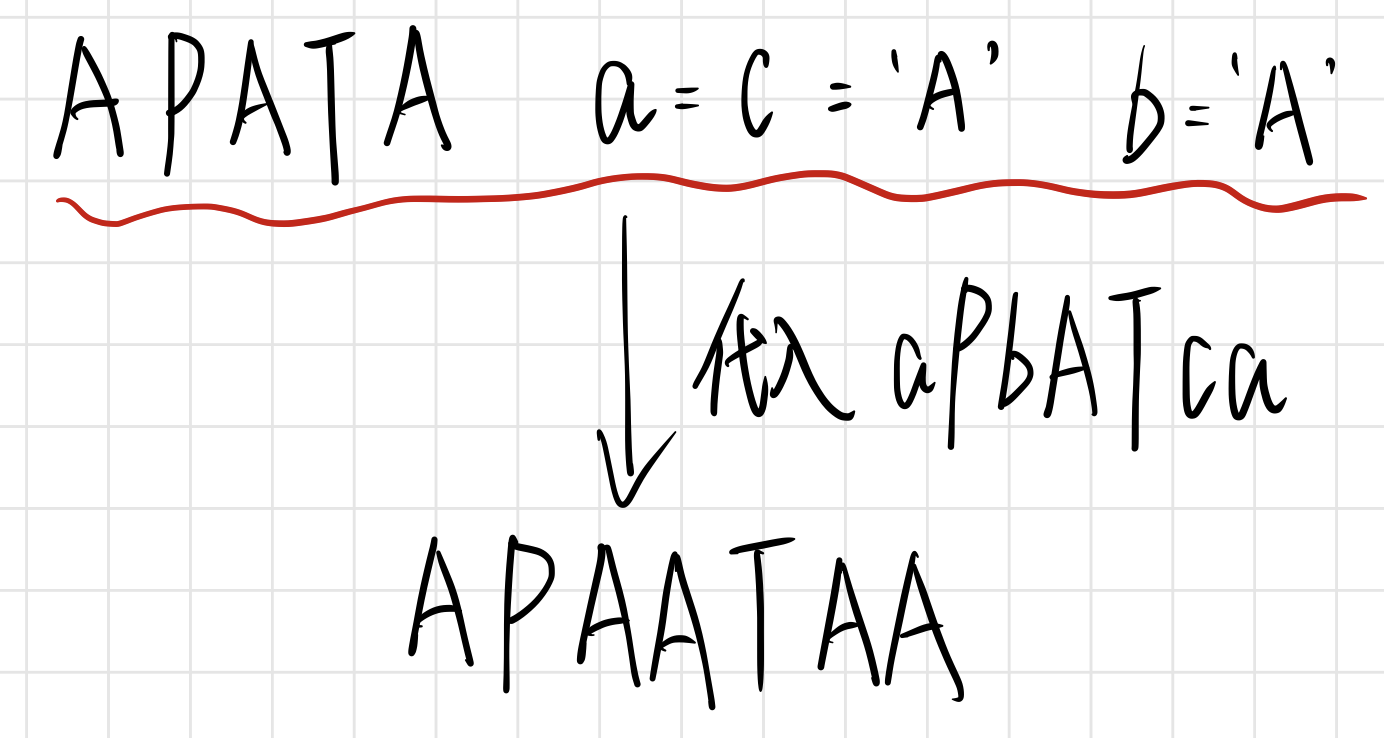 APATA a=c='A' b='A'
代入 aPbATca
APAATAA